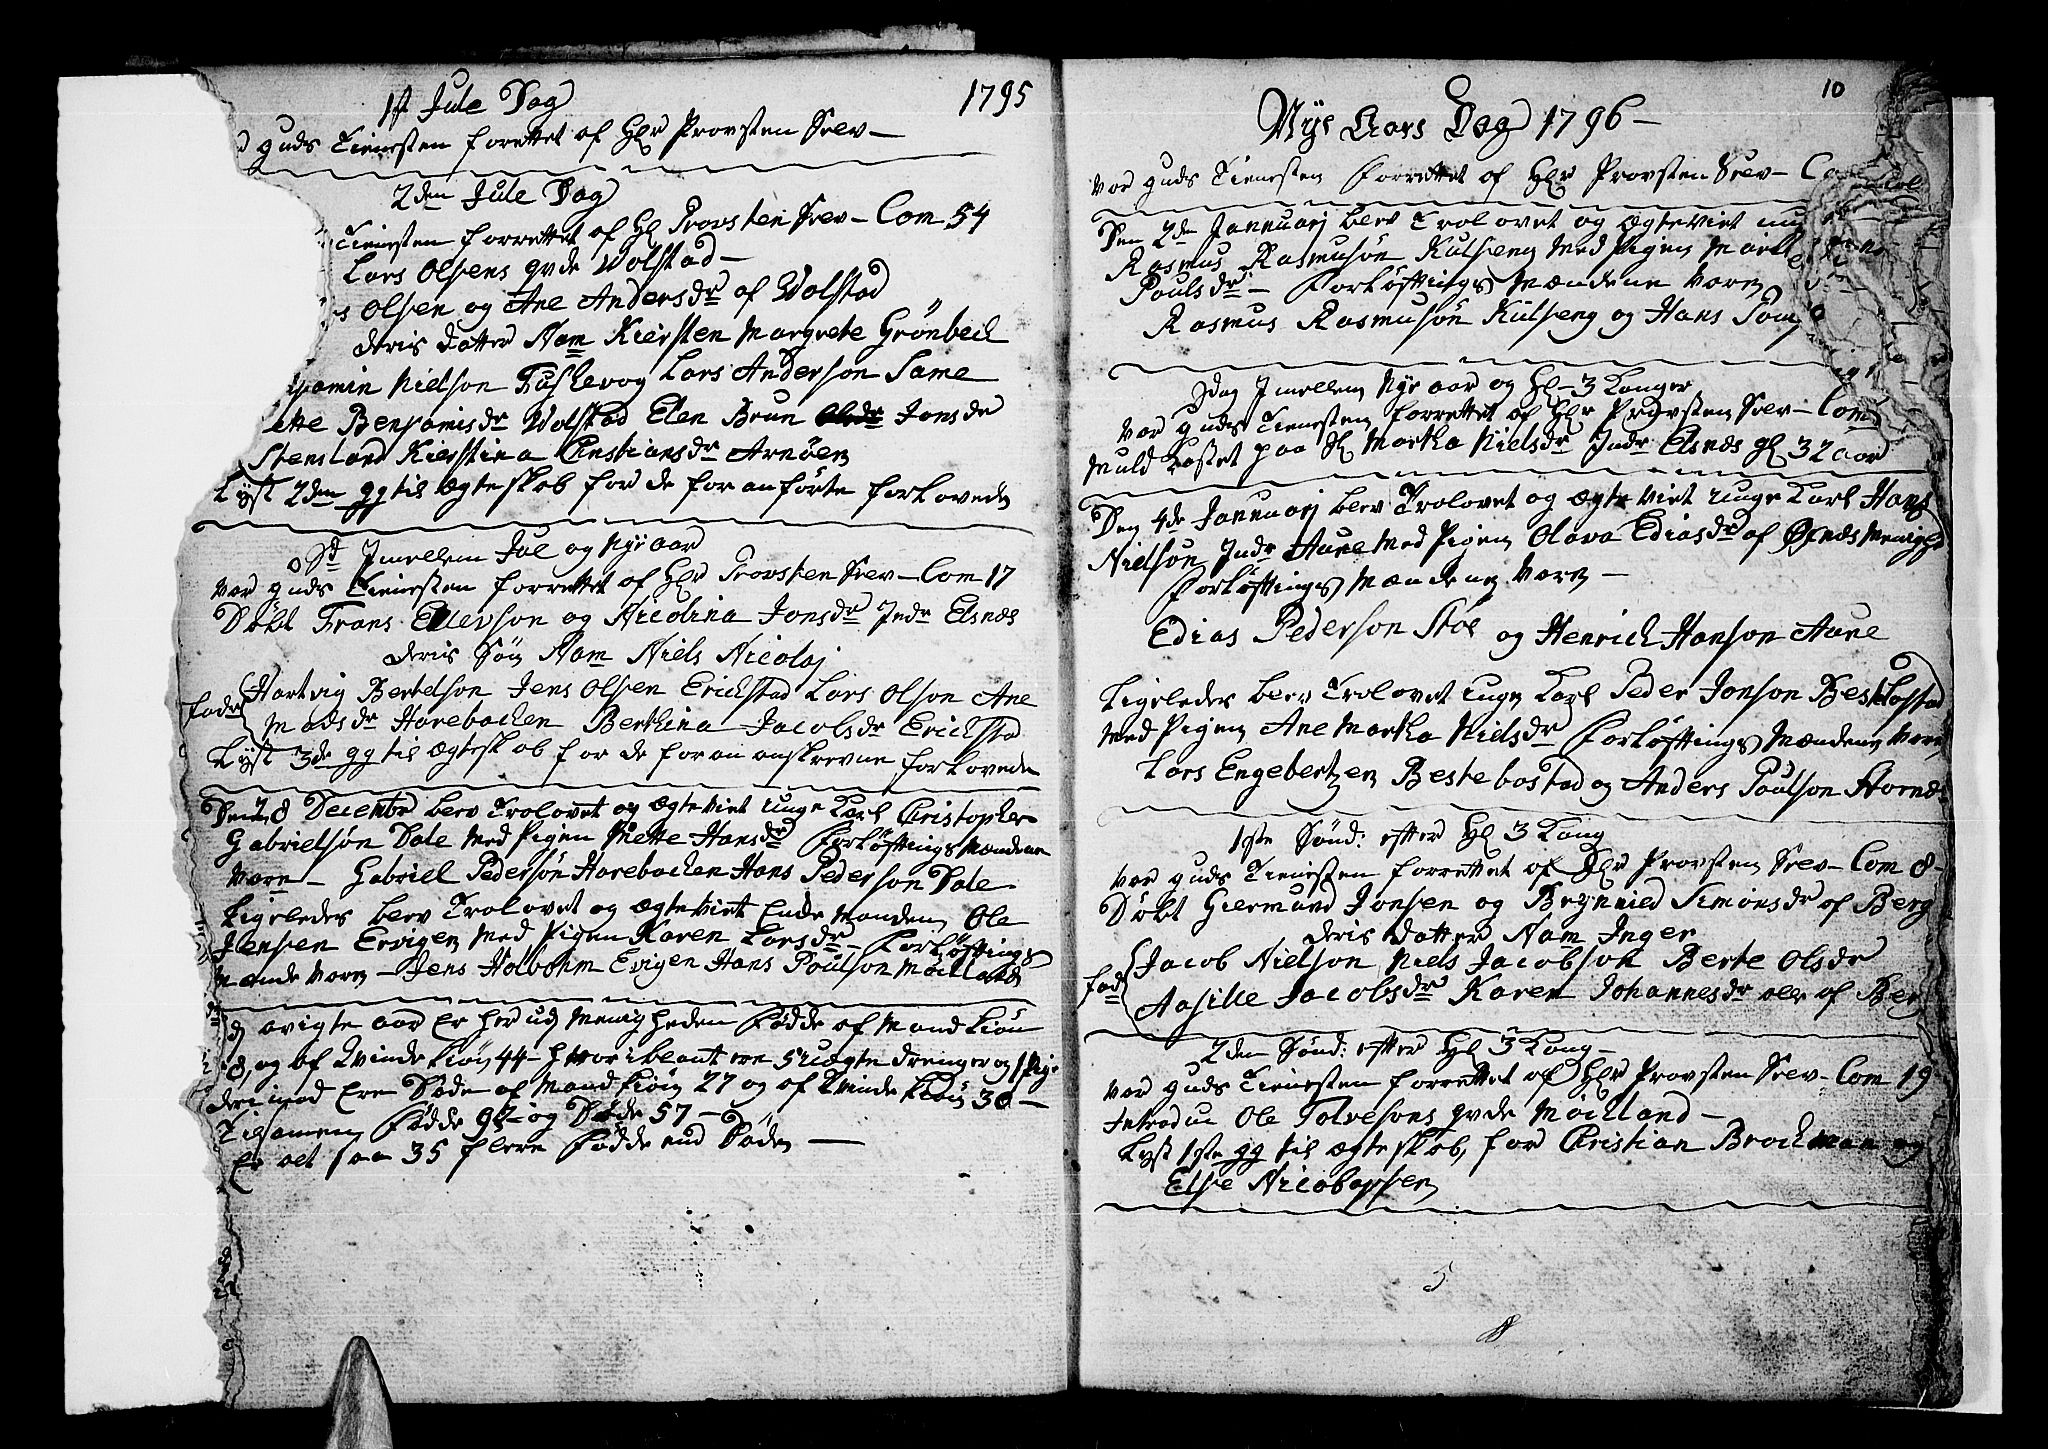 1795
1st Jule Dag
guds Tienesten forettet af Hlr Provsten Selv
2den Jule Dag
Tienesten forrettet af Hl Provsten Selv - Com 54
Lars Olsens qvde Wolstad
Olsen og Ane Andersdr af Wolstad
deris datter Nam Kiersten Margrete Grönbech
jamin Nielson Fuskevog Lars Anderson Same
tte Benjamisdr Wolstad Elen Brun Jonsdr
Stensland Kierstina Christiansdr Arnöen
Lyst 2den gg til ægteskab for de foranförte forlovede
Sd Imellem Jul og Nyt aar
var guds Tienesten forrettet af Hlr Provsten Selv - Com 17
Döbt Frans Ellevson og Nicolina Jonsdr Indr Elsnæs
deris Sön Nam Niels Nicolaj
fadr Hartvig Bertelson Jens Olsen Erickstad Lars Olson Ane
Madsdr Harebacken Berthina Jacobsdr Erickstad
Lyst 3de gg til ægteskab for de foran anskrevne forlovede
Den 28 Decembr blev Trolovet og ægteviet unge Karl Christopher
Gabrielsön Dale med Pigen Mette Hansdr Forlöftings Mændene
vare - Gabriel Pedersön Harebacken Hans Pederson Dale
Ligeledes blev Trolovet og ægteviet Enke Manden Ole
Jensen Ervigen med Pigen Karen Larsdr - Forlöftings
Mænde vare - Jens Holbohm Evigen Hans Poulson Möcland
avigte aar Er her udj Menigheden Födde af Mand kiön
8, og af Qvinde kiön 44 - hvoriblant ere 5 uægte drenger og 1 Pige
derimod Ere Döde af Mand kiön 27 og af Qvinde kiön 30 -
Tilsamen Födde 92 og Döde 57 -
Er alt saa 35 flere Födde end Döde
10
Nye Aars Dag 1796 -
var guds Tienesten forrettet af Hlr Provsten Selv -
Den 2de Januarj blev Trolovet og ægteviet
Rasmus Rasmusön Kulseng med Pigen
Poulsdr - Forlöftings Mændene vare
Rasmus Rasmusön Kulseng og Hans
Sdag Imellem Nyt aar og Hl 3 Konger
var guds Tienesten forrettet af Hlr Provsten Selv - Com
Muld kastet paa Sl Martha Nielsdr Indr Elsnæs gl 32 aar
Den 4de Januarj blev Trolovet og ægteviet unge Karl Hans
Nielson Indr Aune med Pigen Olava Ediasdr af Öfnæs Menighd
Forlöftings Mændene vare -
Edias Pederson Stöe og Henrich Hanson Aune
Ligeledes blev Trolovet unge Karl Peder Jonson Bestebostad
med Pigen Ane Martha Nielsdr Forlöftings Mændene vare
Lars Engebertzen Bestebostad og Anders Poulson Hornæs
1ste Sönd: efter Hl 3 Kong
var guds Tienesten forrettet af Hlr Provsten Selv - Com 8 -
Döbt Giermund Jonsen og Brynnied Simonsdr af Berg
deris datter Nam Inger
fad Jacob Nielson Niels Jacobson Berte Olsdr
Aasille Jacobsdr Karen Johannesdr alle af Berg
2den Sönd: efter Hl 3 Kong -
var guds Tienesten forrettet af Hlr Provsten Selv - Com 19
Introdu Ole Tolvesons qvde Möclland -
Lyst 1ste gg til ægteskab, for Christian Brochman og
Else Nicobarsen
5